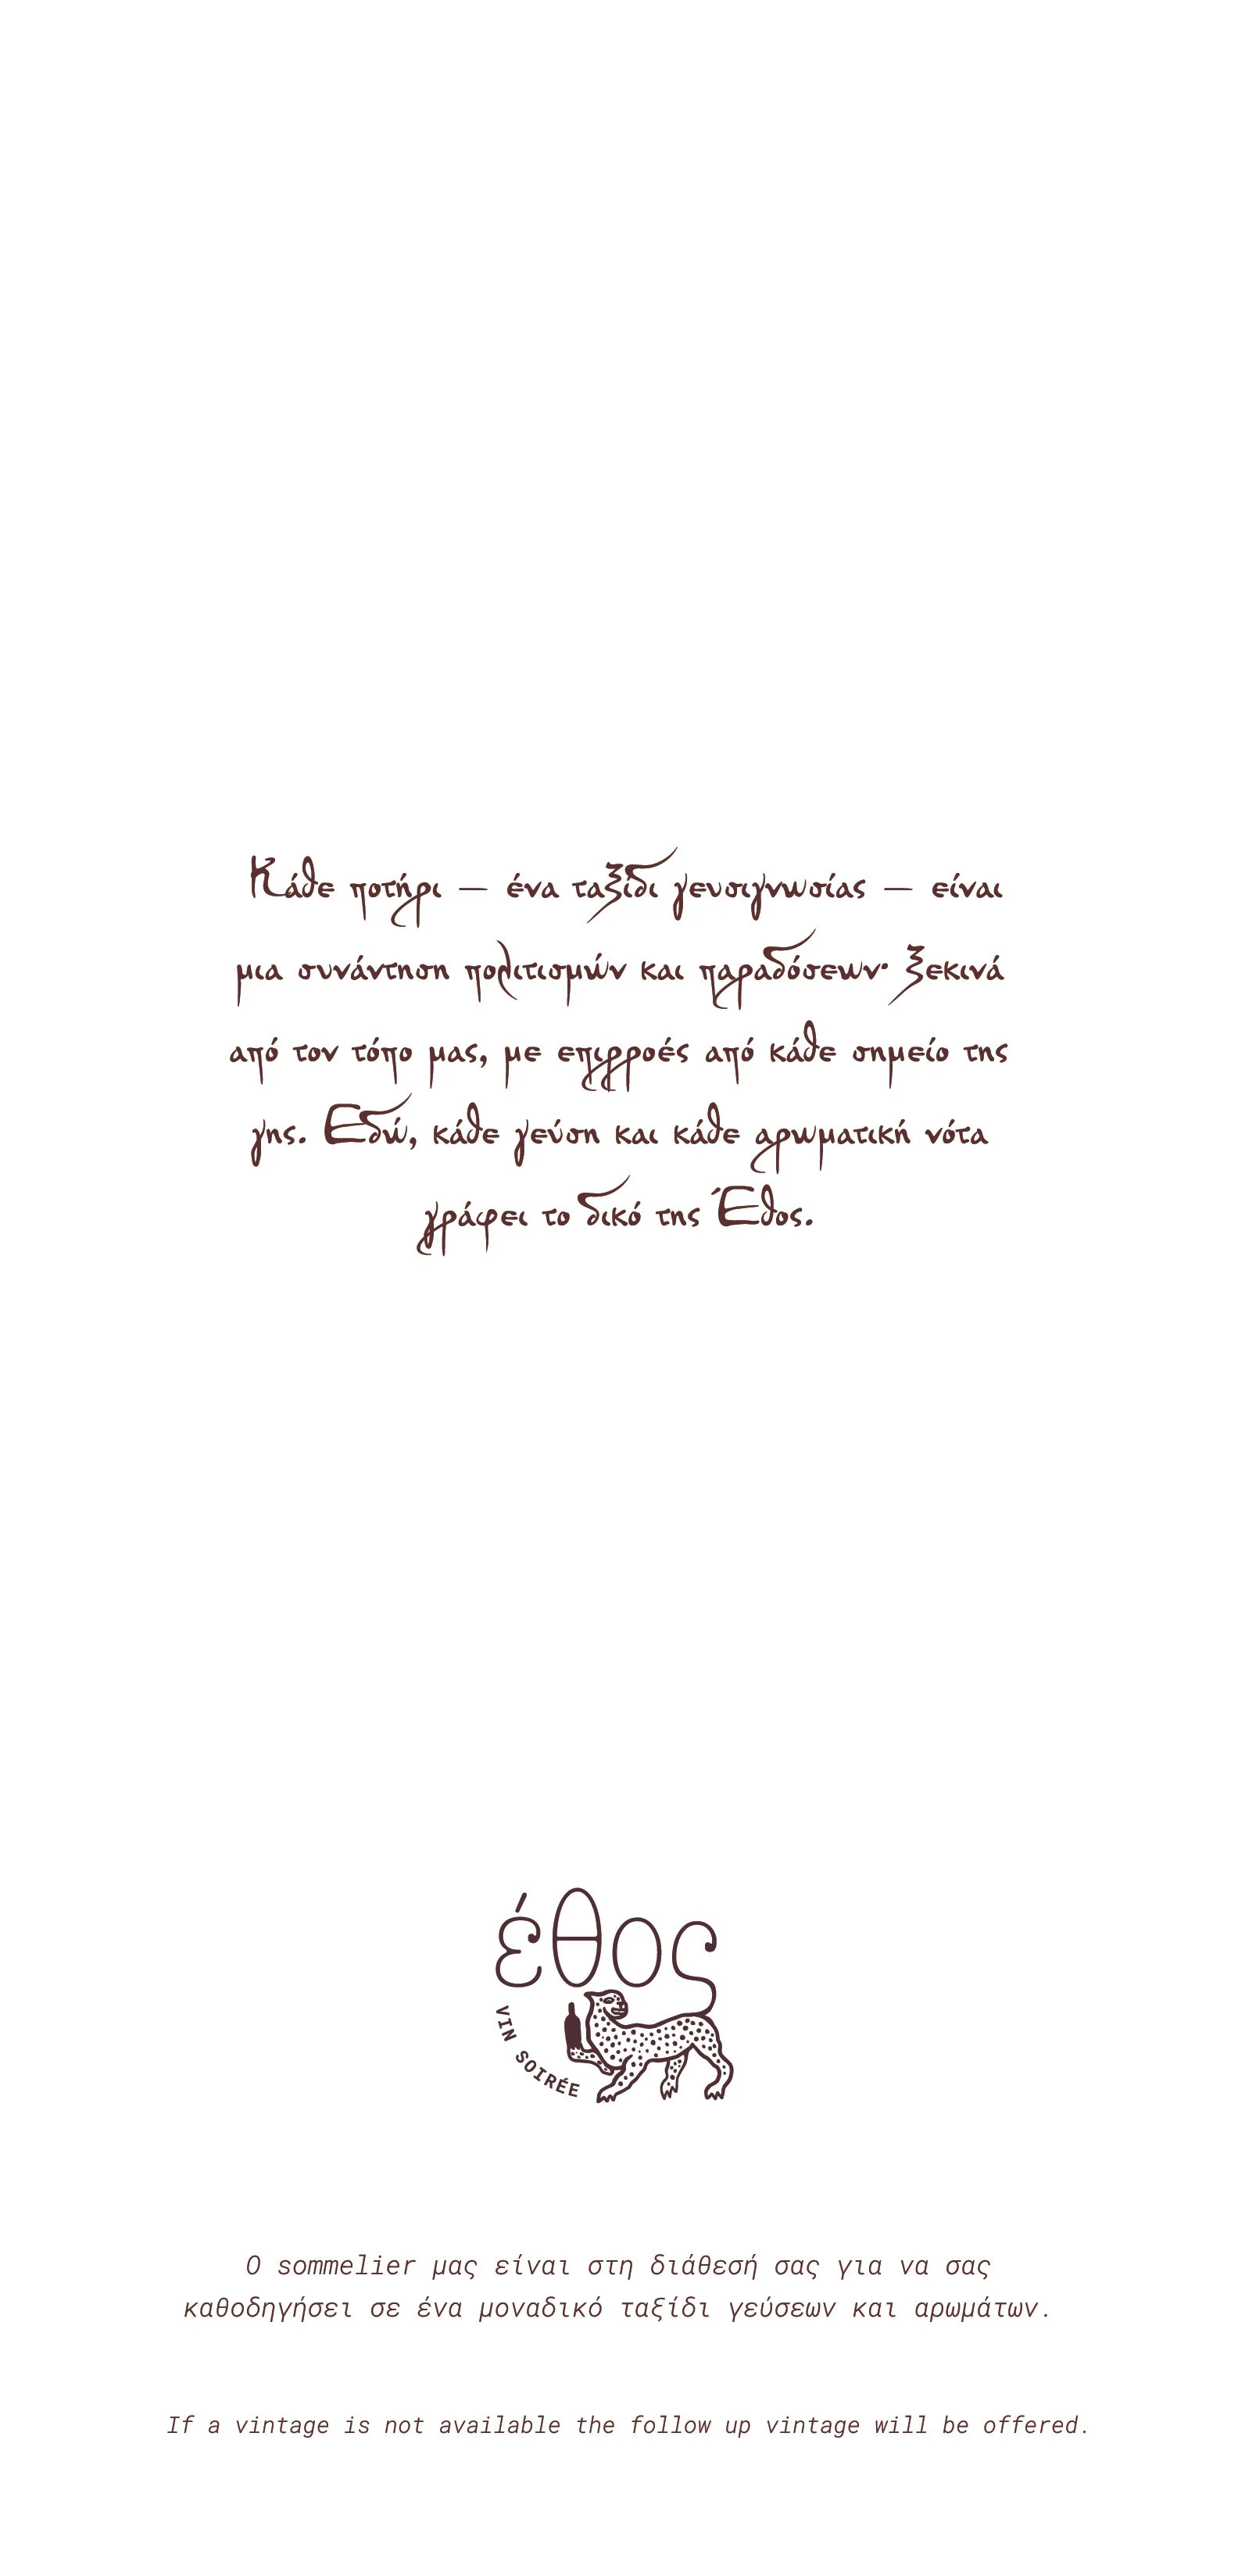 Κάθε ποτήρι — ένα ταξίδι γευσιγνωσίας — είναι
μια συνάντηση πολιτισμών και παραδόσεων· ξεκινά
από τον τόπο μας, με επιρροές από κάθε σημείο της
γης. Εδώ, κάθε γεύση και κάθε αρωματική νότα
γράφει το δικό της Έθος.
έθος
VIN SOIRÉE
Ο sommelier μας είναι στη διάθεσή σας για να σας
καθοδηγήσει σε ένα μοναδικό ταξίδι γεύσεων και αρωμάτων.
If a vintage is not available the follow up vintage will be offered.